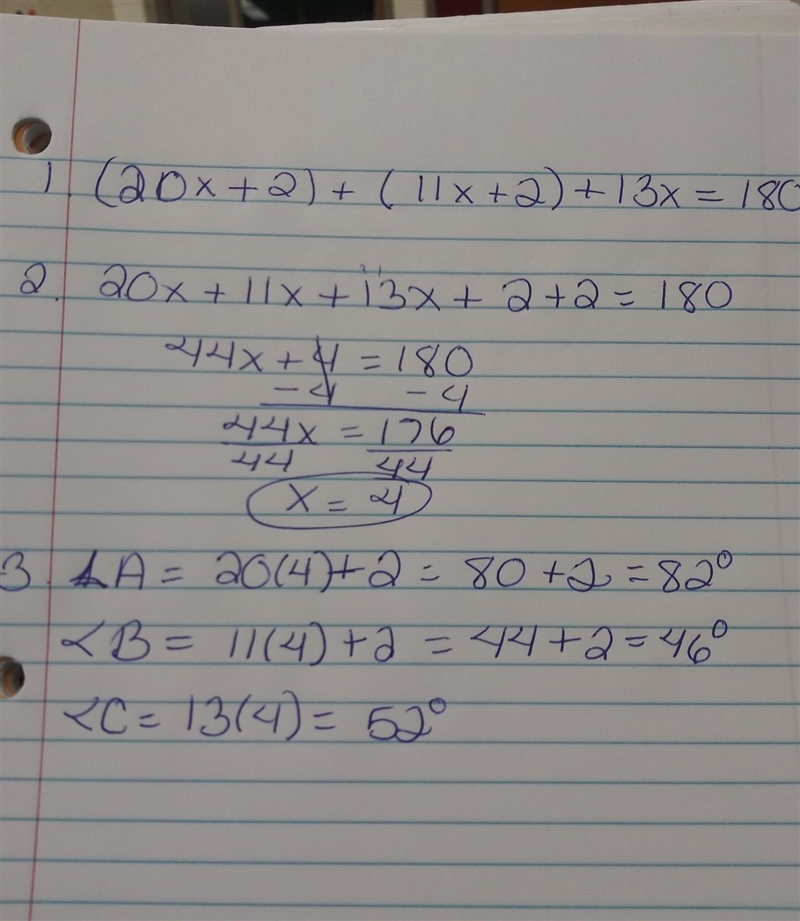 1. (20x+2) + (11x+2)+13x = 180
2. 20x + 11x + 13x + 2+2 = 180
44x + 4 = 180
-4 -4
44x = 176
44 44
x = 4
3. ∠A = 20(4)+2 = 80+2 = 82°
∠B = 11(4)+2 = 44+2 = 46°
∠C = 13(4) = 52°